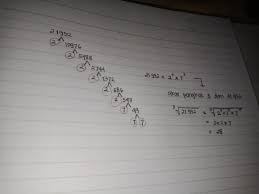 21952
2 10976
2 5488
2 2744
2 1372
2 686
2 343
7 49
7 7
21952 = 2⁶ x 7³
akar pangkat 3 dari 21.952
³√21952 = ³√2⁶ x 7³
= 2x2x7
= 28